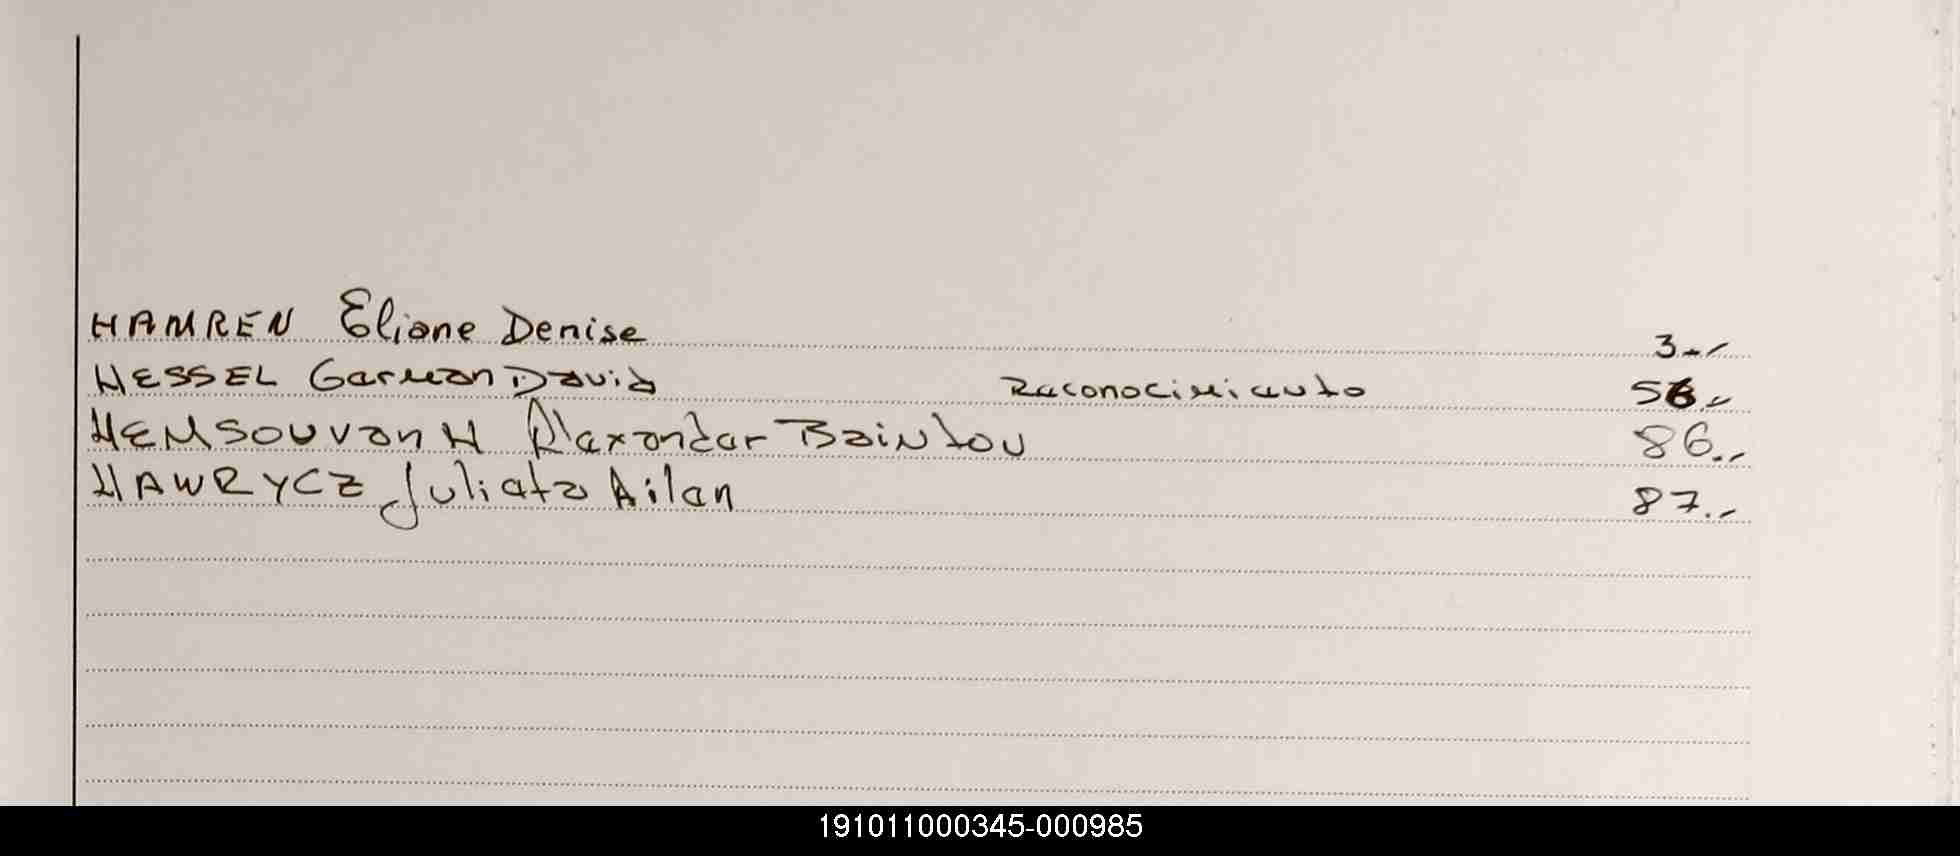 HAMREN Eliane Denise 3.-
HESSEL German David Reconocimiento 56.-
HEMSOUVanH Alexander Bainlou 86.-
HAWRYCZ Julieta Ailen 87.-
191011000345-000985